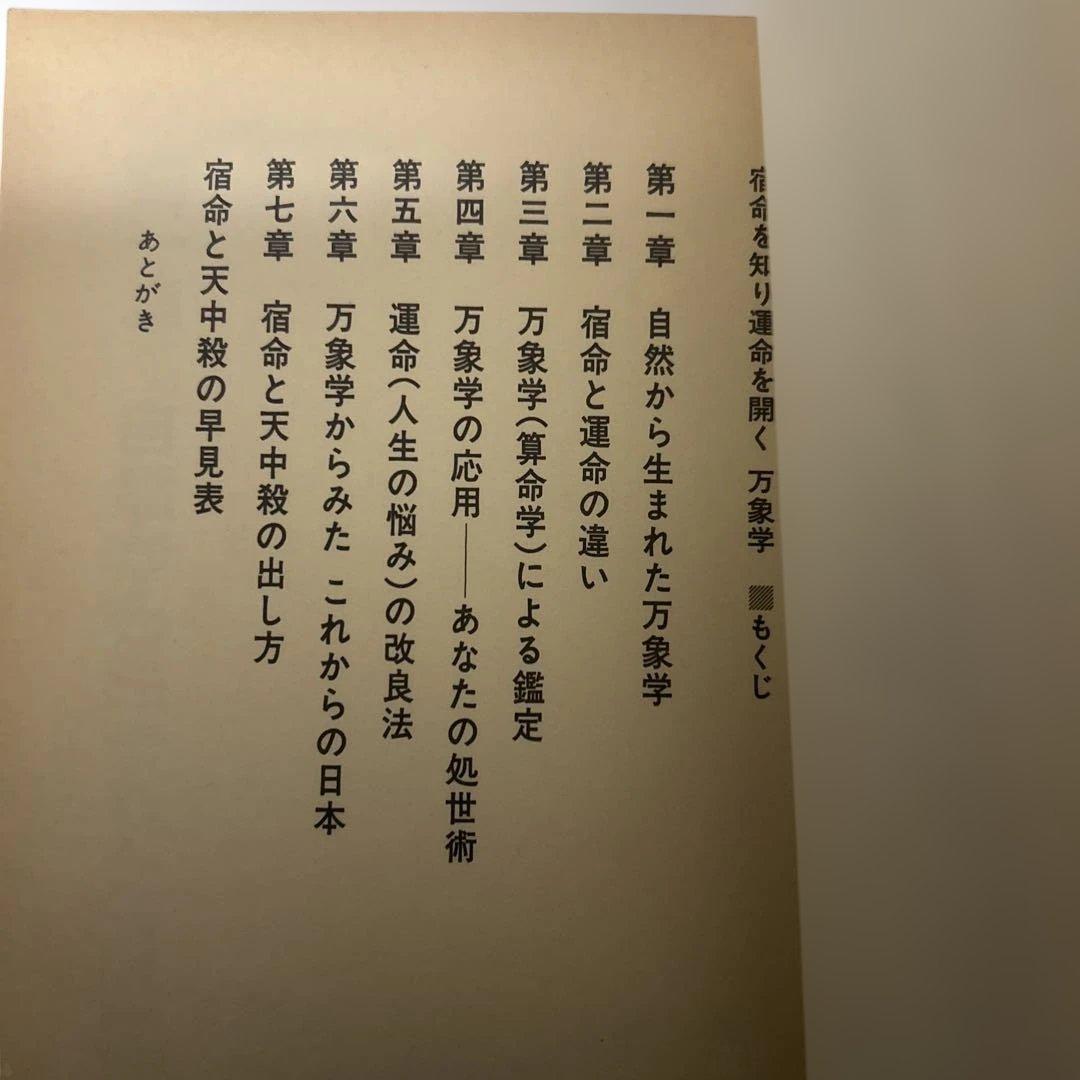 宿命を知り運命を開く 万象学 ▨もくじ
第一章 自然から生まれた万象学
第二章 宿命と運命の違い
第三章 万象学(算命学)による鑑定
第四章 万象学の応用――あなたの処世術
第五章 運命(人生の悩み)の改良法
第六章 万象学からみた これからの日本
第七章 宿命と天中殺の出し方
宿命と天中殺の早見表
あとがき